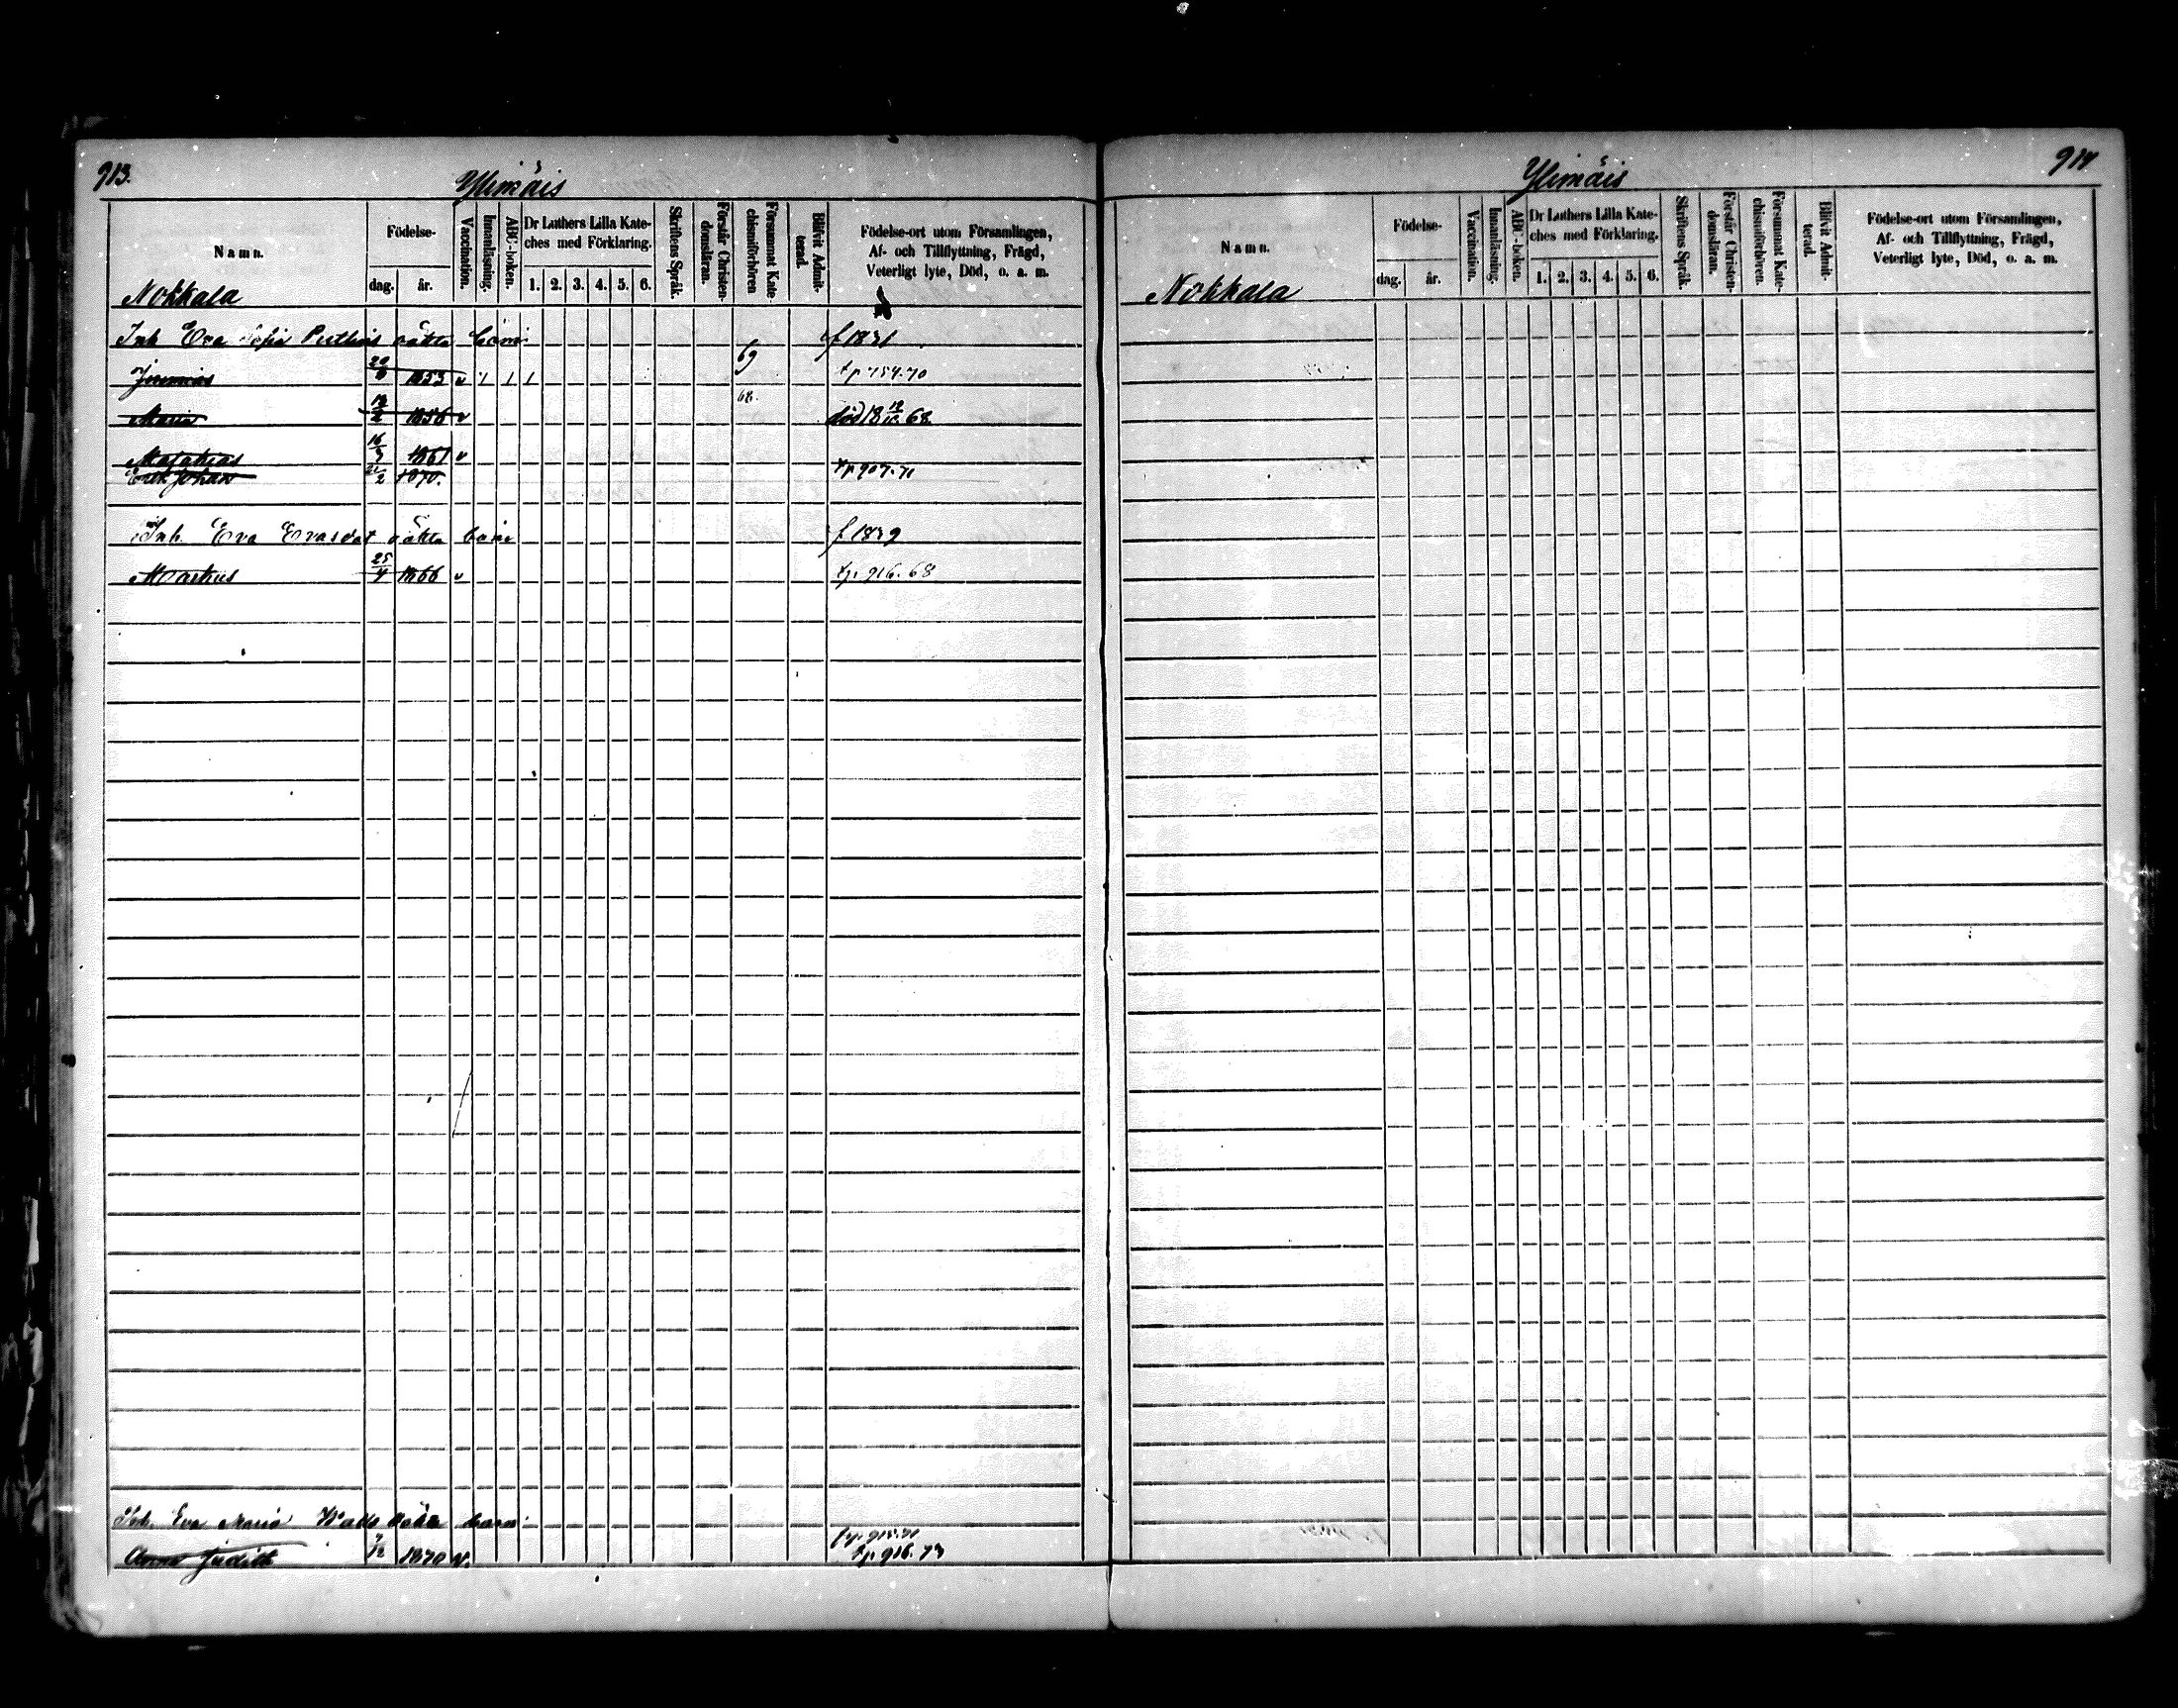 913.
Ylimäis
Namn.
Födelse-
dag. år.
Vaccination.
Innanläsning.
ABC-boken.
Dr Luthers Lilla Kate-
ches med Förklaring.
1. 2. 3. 4. 5. 6.
Skriftens Språk.
Förstår Christen-
domsläran.
Försummat Kate
chismiförhören
Blifvit Admit-
terad.
Födelse-ort utom Församlingen,
Af- och Tillflyttning, Frägd,
Veterligt lyte, Död, o. a. m.
Nokkala
Inh Eva Sofia oäkta barn f 1831
69
Jeremias 1853 v 1 1 1 t p 754.70
68.
Maria 12/2 1856 v död 18 68
Matthias 16/ 1861 v
Erik Johan 1870. t p 907.71
Inh. Eva Evasdot oäkta barn f 1839
Markus 25/4 1866 v t p. 916. 68
Inh. Eva Maria oäkta barn
Anna Judith 1870 v. t p. 916. 73
914
Ylimäis
Namn.
Födelse-
dag. år.
Vaccination.
Innanläsning.
ABC-boken.
Dr Luthers Lilla Kate-
ches med Förklaring.
1. 2. 3. 4. 5. 6.
Skriftens Språk.
Förstår Christen-
domsläran.
Försummat Kate-
chismiförhören.
Blifvit Admit-
terad.
Födelse-ort utom Församlingen,
Af- och Tillflyttning, Frägd,
Veterligt lyte, Död, o. a. m.
Nokkala